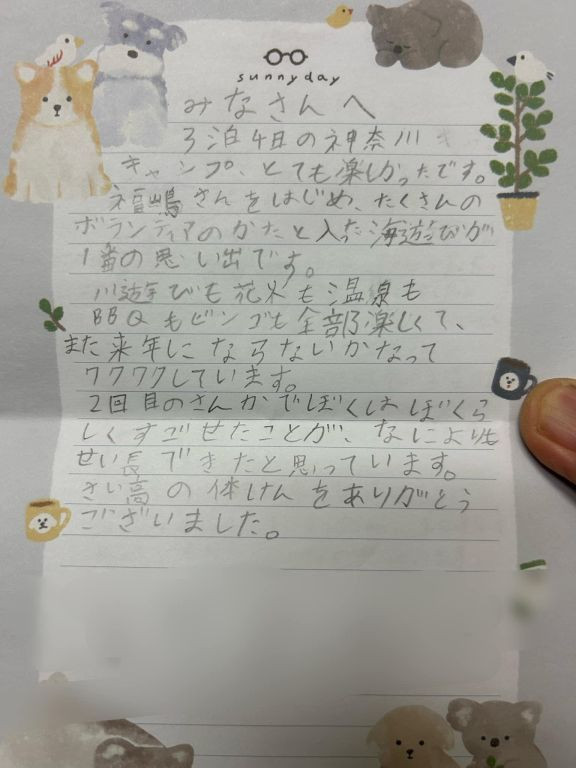 sunnyday
みなさんへ
3泊4日の神奈川
キャンプ、とても楽しかったです。
福嶋さんをはじめ、たくさんの
ボランティアのかたと入った海遊びが
1番の思い出です。
川遊びも花火も温泉も
BBQもビンゴも全部楽しくて、
また来年にならないかなって
ワクワクしています。
2回目のさんかでぼくはぼくら
しくすごせたことが、なによりも
せい長できたと思っています。
さい高の体けんをありがとう
ございました。